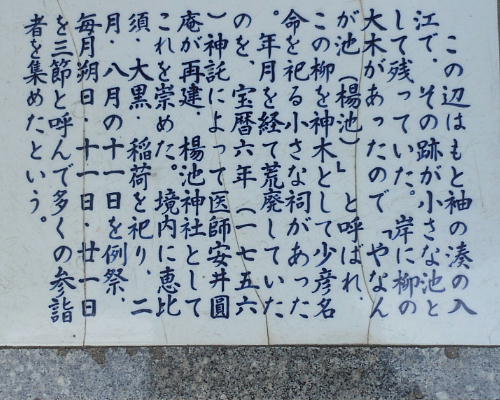 この辺はもと袖の湊の入
江で、その跡が小さな池と
して残っていた。岸に柳の
大木があったので「やなん
が池（楊池）」と呼ばれ、
この柳を神木として少彦名
命を祀る小さな祠があった
。年月を経て荒廃していた
のを、宝暦六年（一七五六
）神託によって医師安井圓
庵が再建、楊池神社として
これを崇めた。境内に恵比
須・大黒・稲荷を祀り、二
月・八月の十一日を例祭、
毎月朔日・十一日・廿一日
を三節と呼んで多くの参詣
者を集めたという。